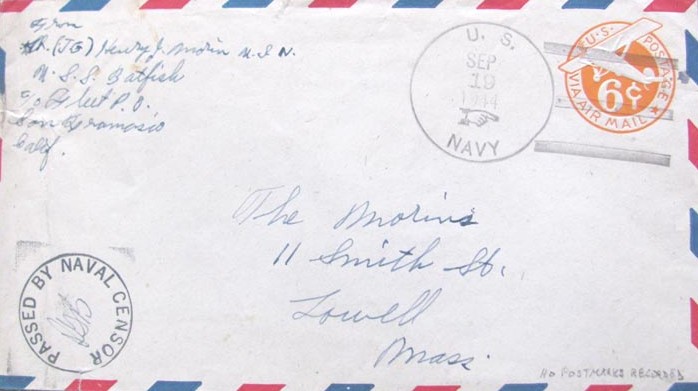 From
Lt. (JG) Henry J. Morin U.S.N.
U.S.S. Batfish
c/o Fleet P.O.
San Francisco
Calif.
U. S.
SEP
19
1944
NAVY
U.S. POSTAGE
6¢
VIA AIR MAIL
The Morins
11 Smith St.
Lowell
Mass.
PASSED BY NAVAL CENSOR
NO POSTMARKS RECORDED